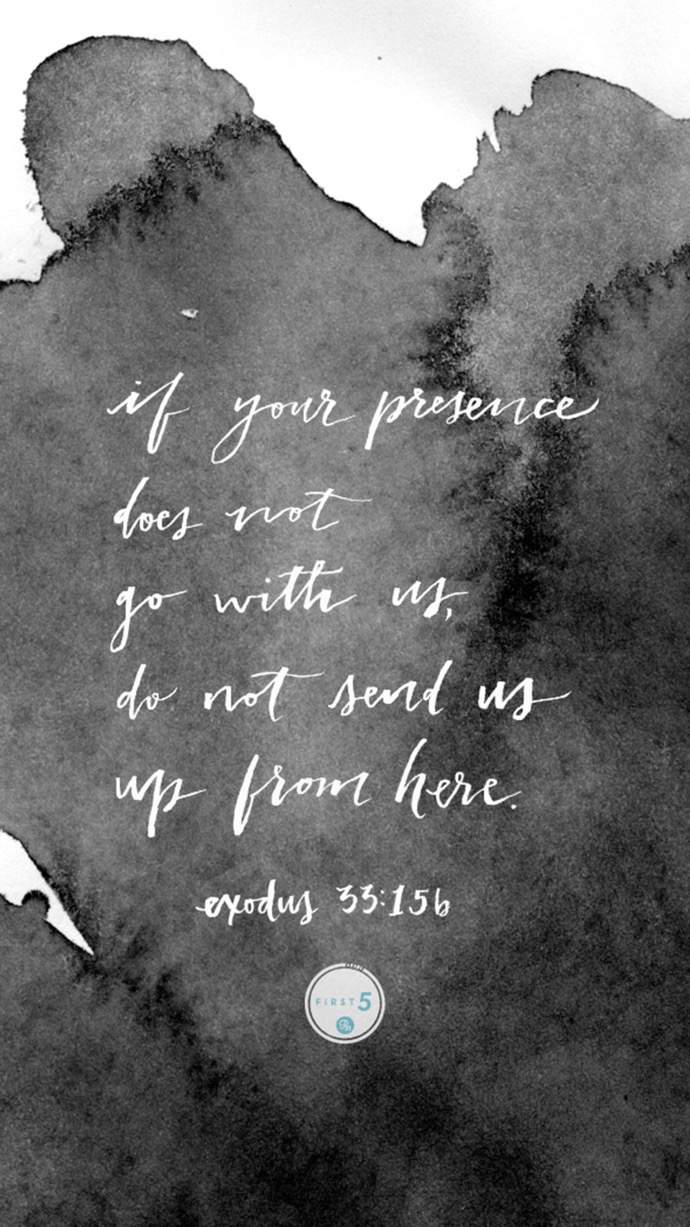 if your presence
does not
go with us,
do not send us
up from here.
exodus 33:15b
FIRST 5